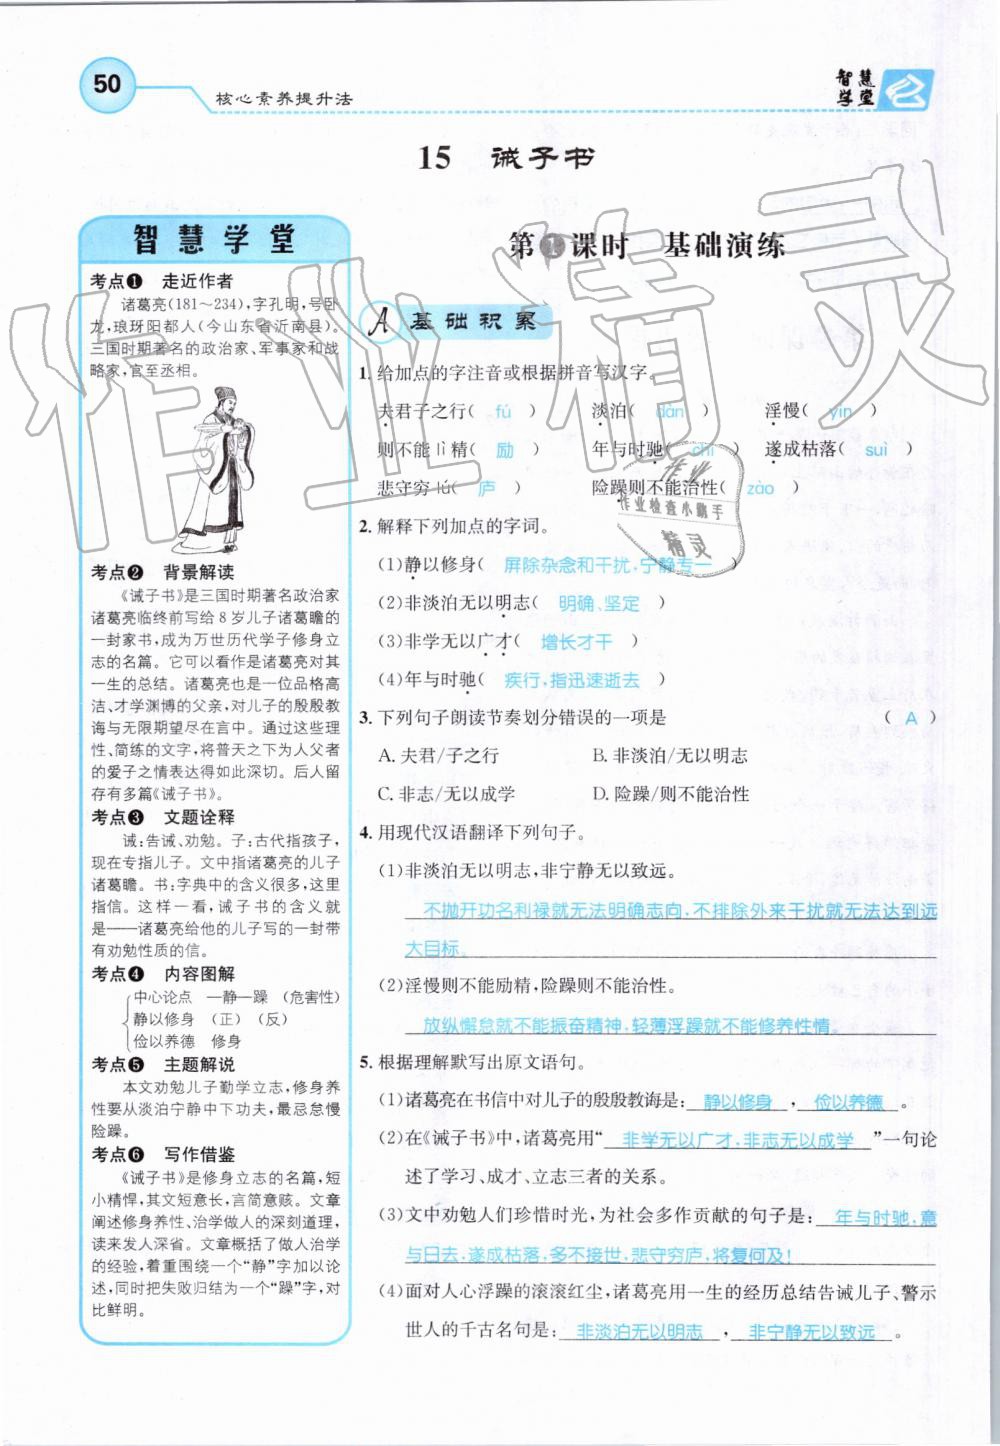 50
核心素养提升法
智慧学堂
15 诫子书
智慧学堂
考点❶ 走近作者
诸葛亮(181～234),字孔明,号卧
龙,琅琊阳都人(今山东省沂南县)。
三国时期著名的政治家、军事家和战
略家,官至丞相。
考点❷ 背景解读
《诫子书》是三国时期著名政治家
诸葛亮临终前写给8岁儿子诸葛瞻的
一封家书,成为万世历代学子修身立
志的名篇。它可以看作是诸葛亮对其
一生的总结。诸葛亮也是一位品格高
洁、才学渊博的父亲,对儿子的殷殷教
诲与无限期望尽在言中。通过这些理
性、简练的文字,将普天之下为人父者
的爱子之情表达得如此深切。后人留
存有多篇《诫子书》。
考点❸ 文题诠释
诫:告诫、劝勉。子:古代指孩子,
现在专指儿子。文中指诸葛亮的儿子
诸葛瞻。书:字典中的含义很多,这里
指信。这样一看,诫子书的含义就
是——诸葛亮给他的儿子写的一封带
有劝勉性质的信。
考点❹ 内容图解
中心论点 —静—躁 (危害性)
静以修身 (正) (反)
俭以养德 修身
考点❺ 主题解说
本文劝勉儿子勤学立志,修身养
性要从淡泊宁静中下功夫,最忌怠慢
险躁。
考点❻ 写作借鉴
《诫子书》是修身立志的名篇,短
小精悍,其文短意长,言简意赅。文章
阐述修身养性、治学做人的深刻道理,
读来发人深省。文章概括了做人治学
的经验,着重围绕一个“静”字加以论
述,同时把失败归结为一个“躁”字,对
比鲜明。
第❶课时 基础演练
A 基础积累
1. 给加点的字注音或根据拼音写汉字。
夫君子之行( fú ) 淡泊( dàn ) 淫慢( yín )
则不能 lì 精( 励 ) 年与时驰( chí ) 遂成枯落( suì )
悲守穷 lú( 庐 ) 险躁则不能治性( zào )
2. 解释下列加点的字词。
(1)静以修身( 屏除杂念和干扰,宁静专一 )
(2)非淡泊无以明志( 明确、坚定 )
(3)非学无以广才( 增长才干 )
(4)年与时驰( 疾行,指迅速逝去 )
3. 下列句子朗读节奏划分错误的一项是 ( A )
A. 夫君/子之行 B. 非淡泊/无以明志
C. 非志/无以成学 D. 险躁/则不能治性
4. 用现代汉语翻译下列句子。
(1)非淡泊无以明志,非宁静无以致远。
不抛开功名利禄就无法明确志向,不排除外来干扰就无法达到远
大目标。
(2)淫慢则不能励精,险躁则不能治性。
放纵懈怠就不能振奋精神,轻薄浮躁就不能修养性情。
5. 根据理解默写出原文语句。
(1)诸葛亮在书信中对儿子的殷殷教诲是: 静以修身 , 俭以养德 。
(2)在《诫子书》中,诸葛亮用“ 非学无以广才,非志无以成学 ”一句论
述了学习、成才、立志三者的关系。
(3)文中劝勉人们珍惜时光,为社会多作贡献的句子是: 年与时驰,意
与日去,遂成枯落,多不接世,悲守穷庐,将复何及!
(4)面对人心浮躁的滚滚红尘,诸葛亮用一生的经历总结告诫儿子、警示
世人的千古名句是: 非淡泊无以明志 , 非宁静无以致远 。
作业精灵
作业
作业检查小助手
精灵